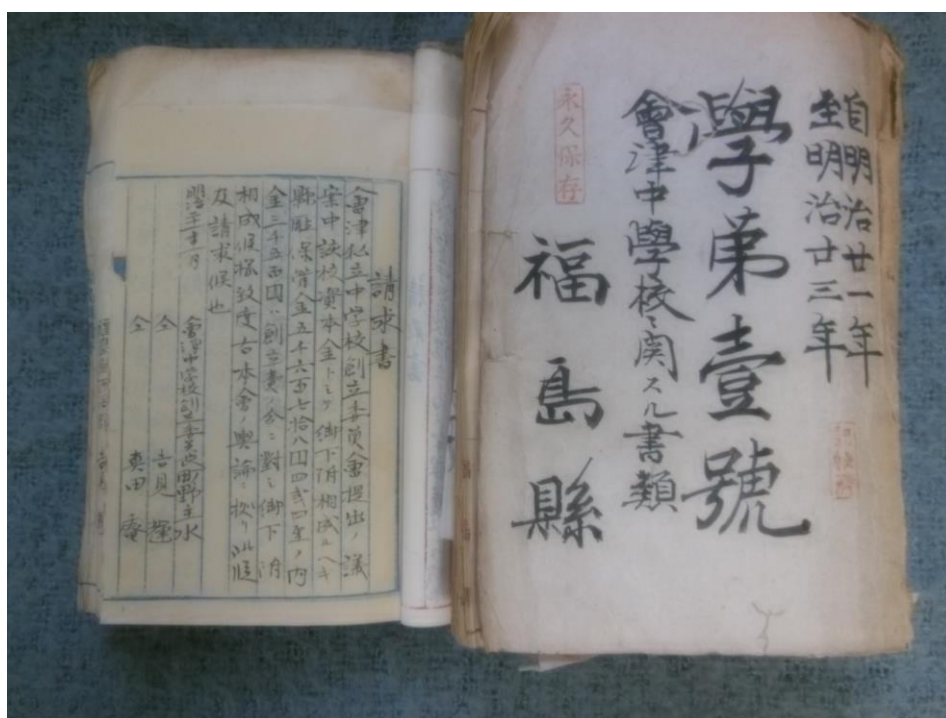 自明治廿一年
至明治廿三年
學第壹號
會津中學校ニ関スル書類
永久保存
福島縣
請求書
會津私立中学校創立委員會提出ノ議
案中該校資本金トシテ御下附相成ルヘキ
縣廳保管金五千六百七拾八円四銭四厘ノ内
金三千五百円ハ創立費ノ分ニ對シ御下附
相成候様致度右本会ノ輿論ニ拠リ此段
及請求候也
會津中学校創立委員町野主水
仝 吉見
仝